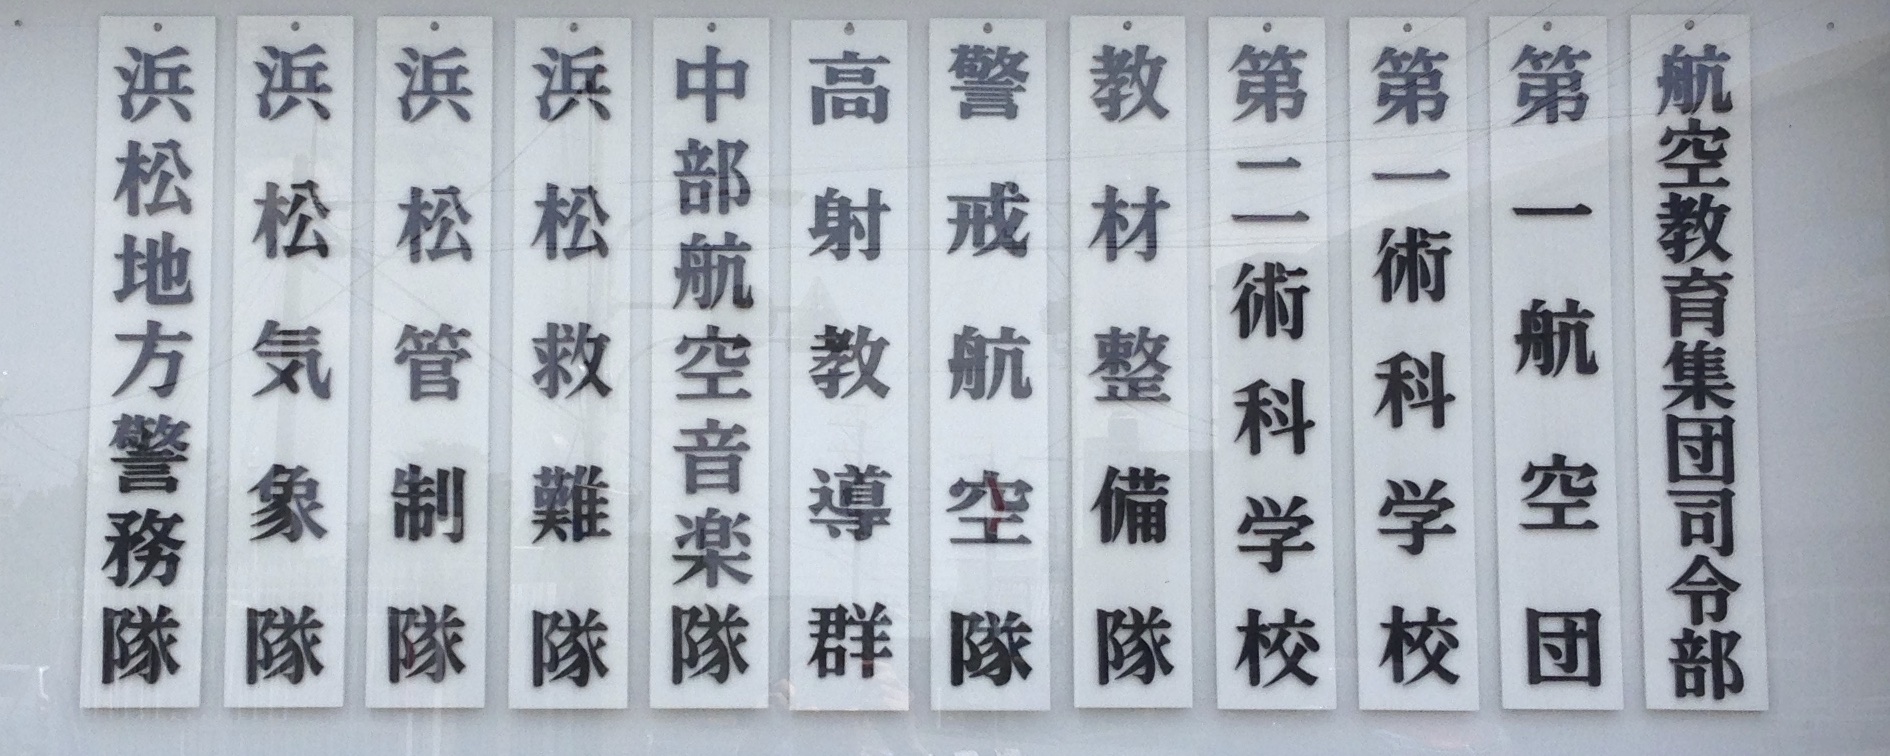 航空教育集団司令部
第一航空団
第一術科学校
第二術科学校
教材整備隊
警戒航空隊
高射教導群
中部航空音楽隊
浜松救難隊
浜松管制隊
浜松気象隊
浜松地方警務隊